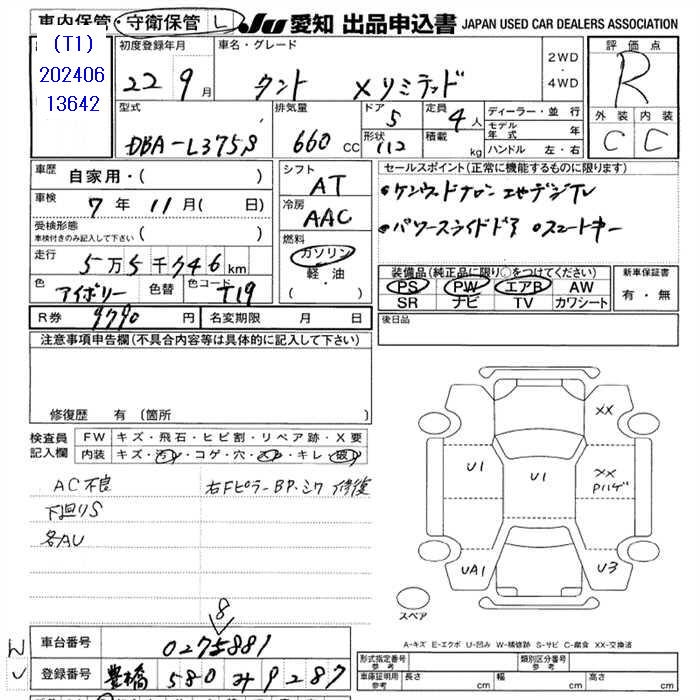 車内保管・守衛保管 L JU 愛知 出品申込書 JAPAN USED CAR DEALERS ASSOCIATION
(T1)
202406
13642
初度登録年月 車名・グレード
22 9月 タント Xリミテッド
2WD
・
4WD
評価点
R
外装 内装
C C
型式 排気量 ドア 定員
DBA-L375S 660 CC 5 4人
形状 112 積載 kg
ディーラー・並行
モデル年式 年
ハンドル 左・右
車歴 自家用・( )
車検 7年11月( 日)
受検形態
車検付きのみ記入して下さい ( )
走行 5万5千746km
色 アイボリー 色替 色コード T19
R券 9790円 名変期限 月 日
シフト
AT
冷房
AAC
燃料
ガソリン
軽・油
( ・ )
セールスポイント(正常に機能するものに限ります)
・ケンウッドナロン エセデジTV
・パワースライドドア ○スマートキー
装備品(純正品に限り○をつけてください)
PS PW エアB AW
SR ナビ TV カワシート
新車保証書
有・無
後日品
注意事項申告欄(不具合内容等は具体的に記入して下さい)
修復歴 有(箇所 )
検査員記入欄
FW キズ・飛石・ヒビ割・リペア跡・X要
内装 キズ・汚レ・コゲ・穴・スレ・キレ・破レ
AC不良 右FピラーBP.シワ 修復
下廻りS
各AU
XX
U1 U1 XX
Pハゲ
UA1 U3
スペア
A-キズ E-エクボ U-凹み W-補修跡 S-サビ C-腐食 XX-交換済
8
車台番号 0275881
登録番号 豊橋 580 み 9287
形式指定番号
参考
類別区分番号
参考
車庫証明用
参考
長さ cm 幅 cm 高さ cm